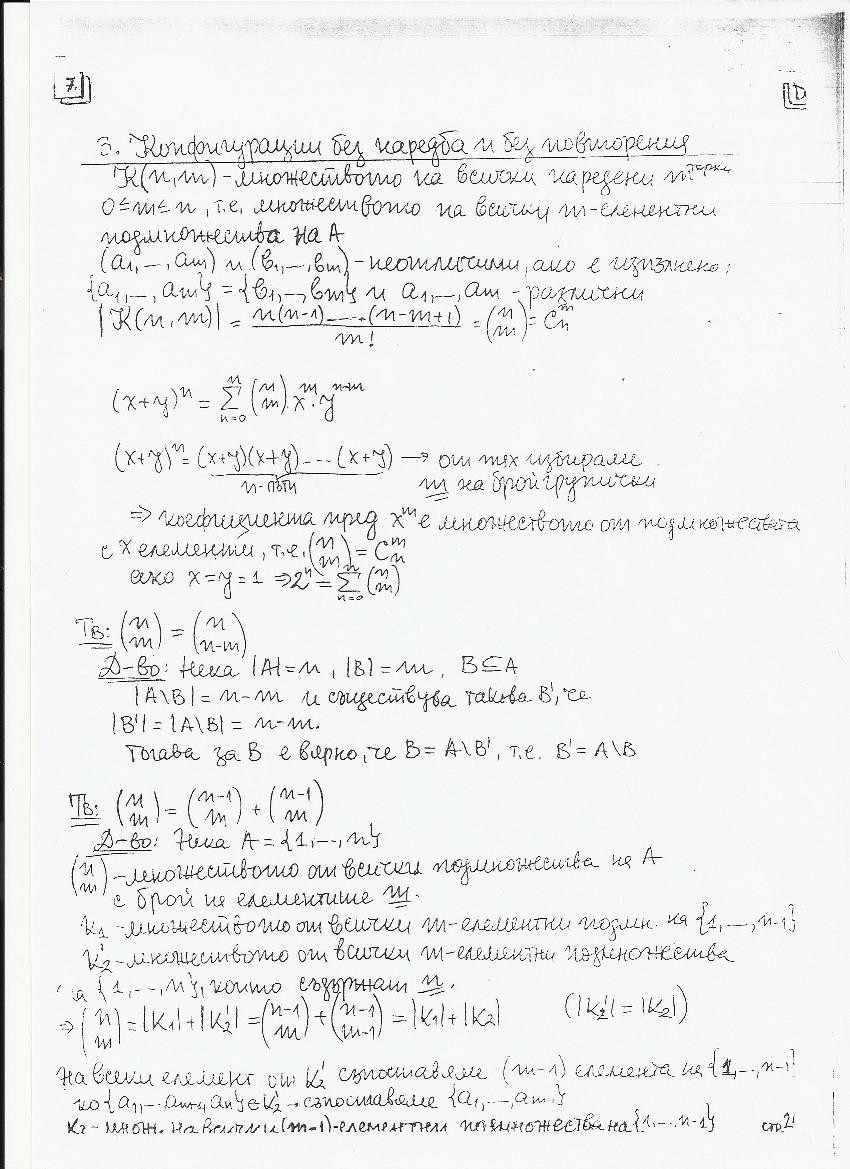 7.
3. Конфигурации без наредба и без повторения
K(n,m) - множеството на всички наредени m-торки
0 ≤ m ≤ n, т.е. множеството на всички m-елементни
подмножества на A
(a1,..., am) и (b1,..., bm) - неотличими, ако е изпълнено:
{a1,..., am} = {b1,..., bm} и a1,..., am - различни
|K(n,m)| = n(n-1).....(n-m+1) / m! = (n m) = C_n^m
(x+y)^n = Σ_{n=0}^{n} (n m) . x^m . y^{n-m}
(x+y)^n = (x+y)(x+y)....(x+y) → от тях избираме
n-пъти m на брой групички
⇒ коефициента пред x^m е множеството от подмножества
с x елементи, т.е. (n m) = C_n^m
ако x=y=1 ⇒ 2^n = Σ_{n=0}^{n} (n m)
Тв: (n m) = (n n-m)
Д-во: Нека |A|=n, |B|=m, B⊆A
|A\B| = n-m и съществува такова B', че
|B'| = |A\B| = n-m.
Тогава за B е вярно, че B = A\B', т.е. B' = A\B
Тв: (n m) = (n-1 m) + (n-1 m)
Д-во: Нека A = {1,..., n}
(n m) - множеството от всички подмножества на A
с брой на елементите m.
K1 - множеството от всички m-елементни подмн. на {1,..., n-1}
K2' - множеството от всички m-елементни подмножества
на {1,..., n}, които съдържат n.
⇒ (n m) = |K1| + |K2'| = (n-1 m) + (n-1 m-1) = |K1| + |K2| (|K2'| = |K2|)
На всеки елемент от K2' съпоставяме (m-1) елемента на {1,..., n-1}
{a1,... am-1, an} ∈ K2 → съпоставяме {a1,..., am-1}
K2 - множ. на всички (m-1)-елементни подмножества на {1,..., n-1} стр. 2